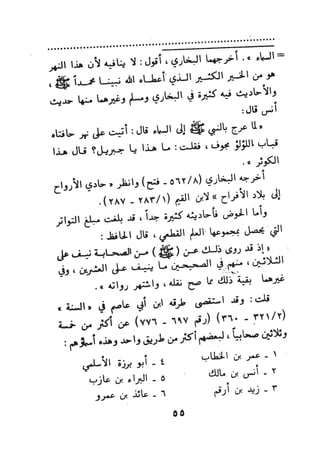 = السماء ». أخرجهما البخاري، أقول: لا ينافيه لأن هذا النهر
هو من الخير الكثير الذي أعطاه الله نبينا محمداً ﷺ،
والأحاديث فيه كثيرة في البخاري ومسلم وغيرهما منها حديث
أنس قال:
« لما عرج بالنبي ﷺ إلى السماء قال: أتيت على نهر حافتاه
قباب اللؤلؤ مجوف، فقلت: ما هذا يا جبريل؟ قال هذا
الكوثر ».
أخرجه البخاري (٥٦٢/٨ - فتح) وانظر « حادي الأرواح
إلى بلاد الأفراح » لابن القيم (٢٨٣/١ - ٢٨٧).
وأما الحوض فأحاديثه كثيرة جداً، قد بلغت مبلغ التواتر
التي يحصل بمجموعها العلم القطعي، قال الحافظ:
« إذ قد روى ذلك عن (ﷺ) من الصحابة نيف على
الثلاثين، منهم في الصحيحين ما ينيف على العشرين، وفي
غيرهما بقية ذلك مما صح نقله، واشتهر رواته ».
قلت: وقد استقصى طرقه ابن أبي عاصم في « السنة »
(٣٢١/٢ - ٣٦٠) (رقم ٦٩٧ - ٧٧٦) عن أكثر من خمسة
وثلاثين صحابياً، لبعضهم أكثر من طريق واحد وهذه أسماؤهم:
١ - عمر بن الخطاب
٢ - أنس بن مالك
٣ - زيد بن أرقم
٤ - أبو برزة الأسلمي
٥ - البراء بن عازب
٦ - عائذ بن عمرو
٥٥